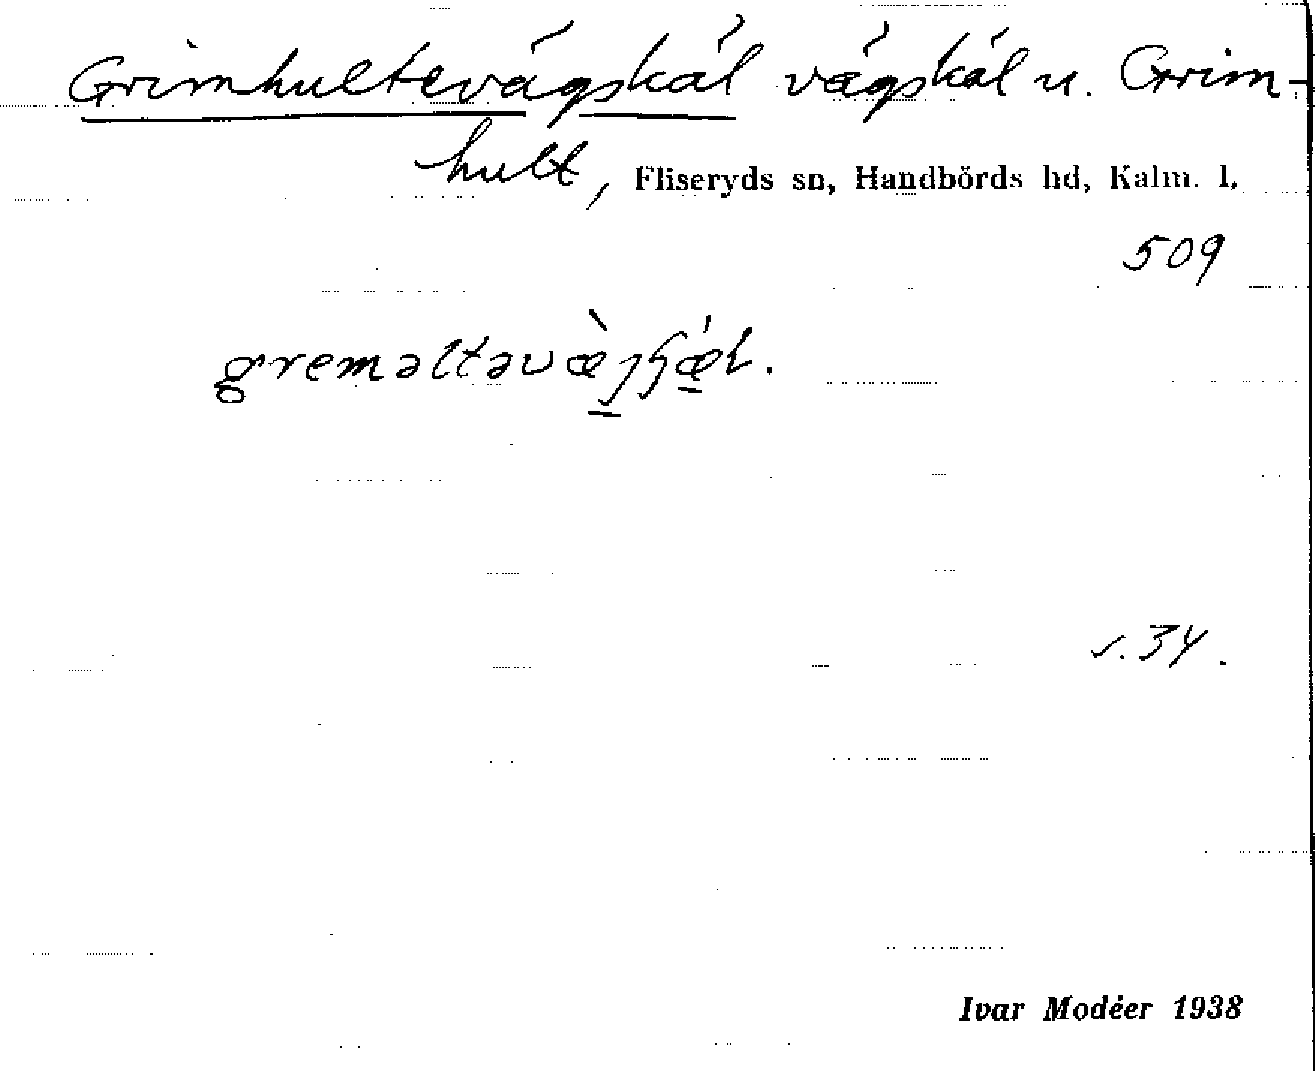 Grimhultevägskäl vägskäl u. Grim-
hult, Fliseryds sn, Handbörds hd, Kalm. l.
509
s. 34.
Ivar Modéer 1938